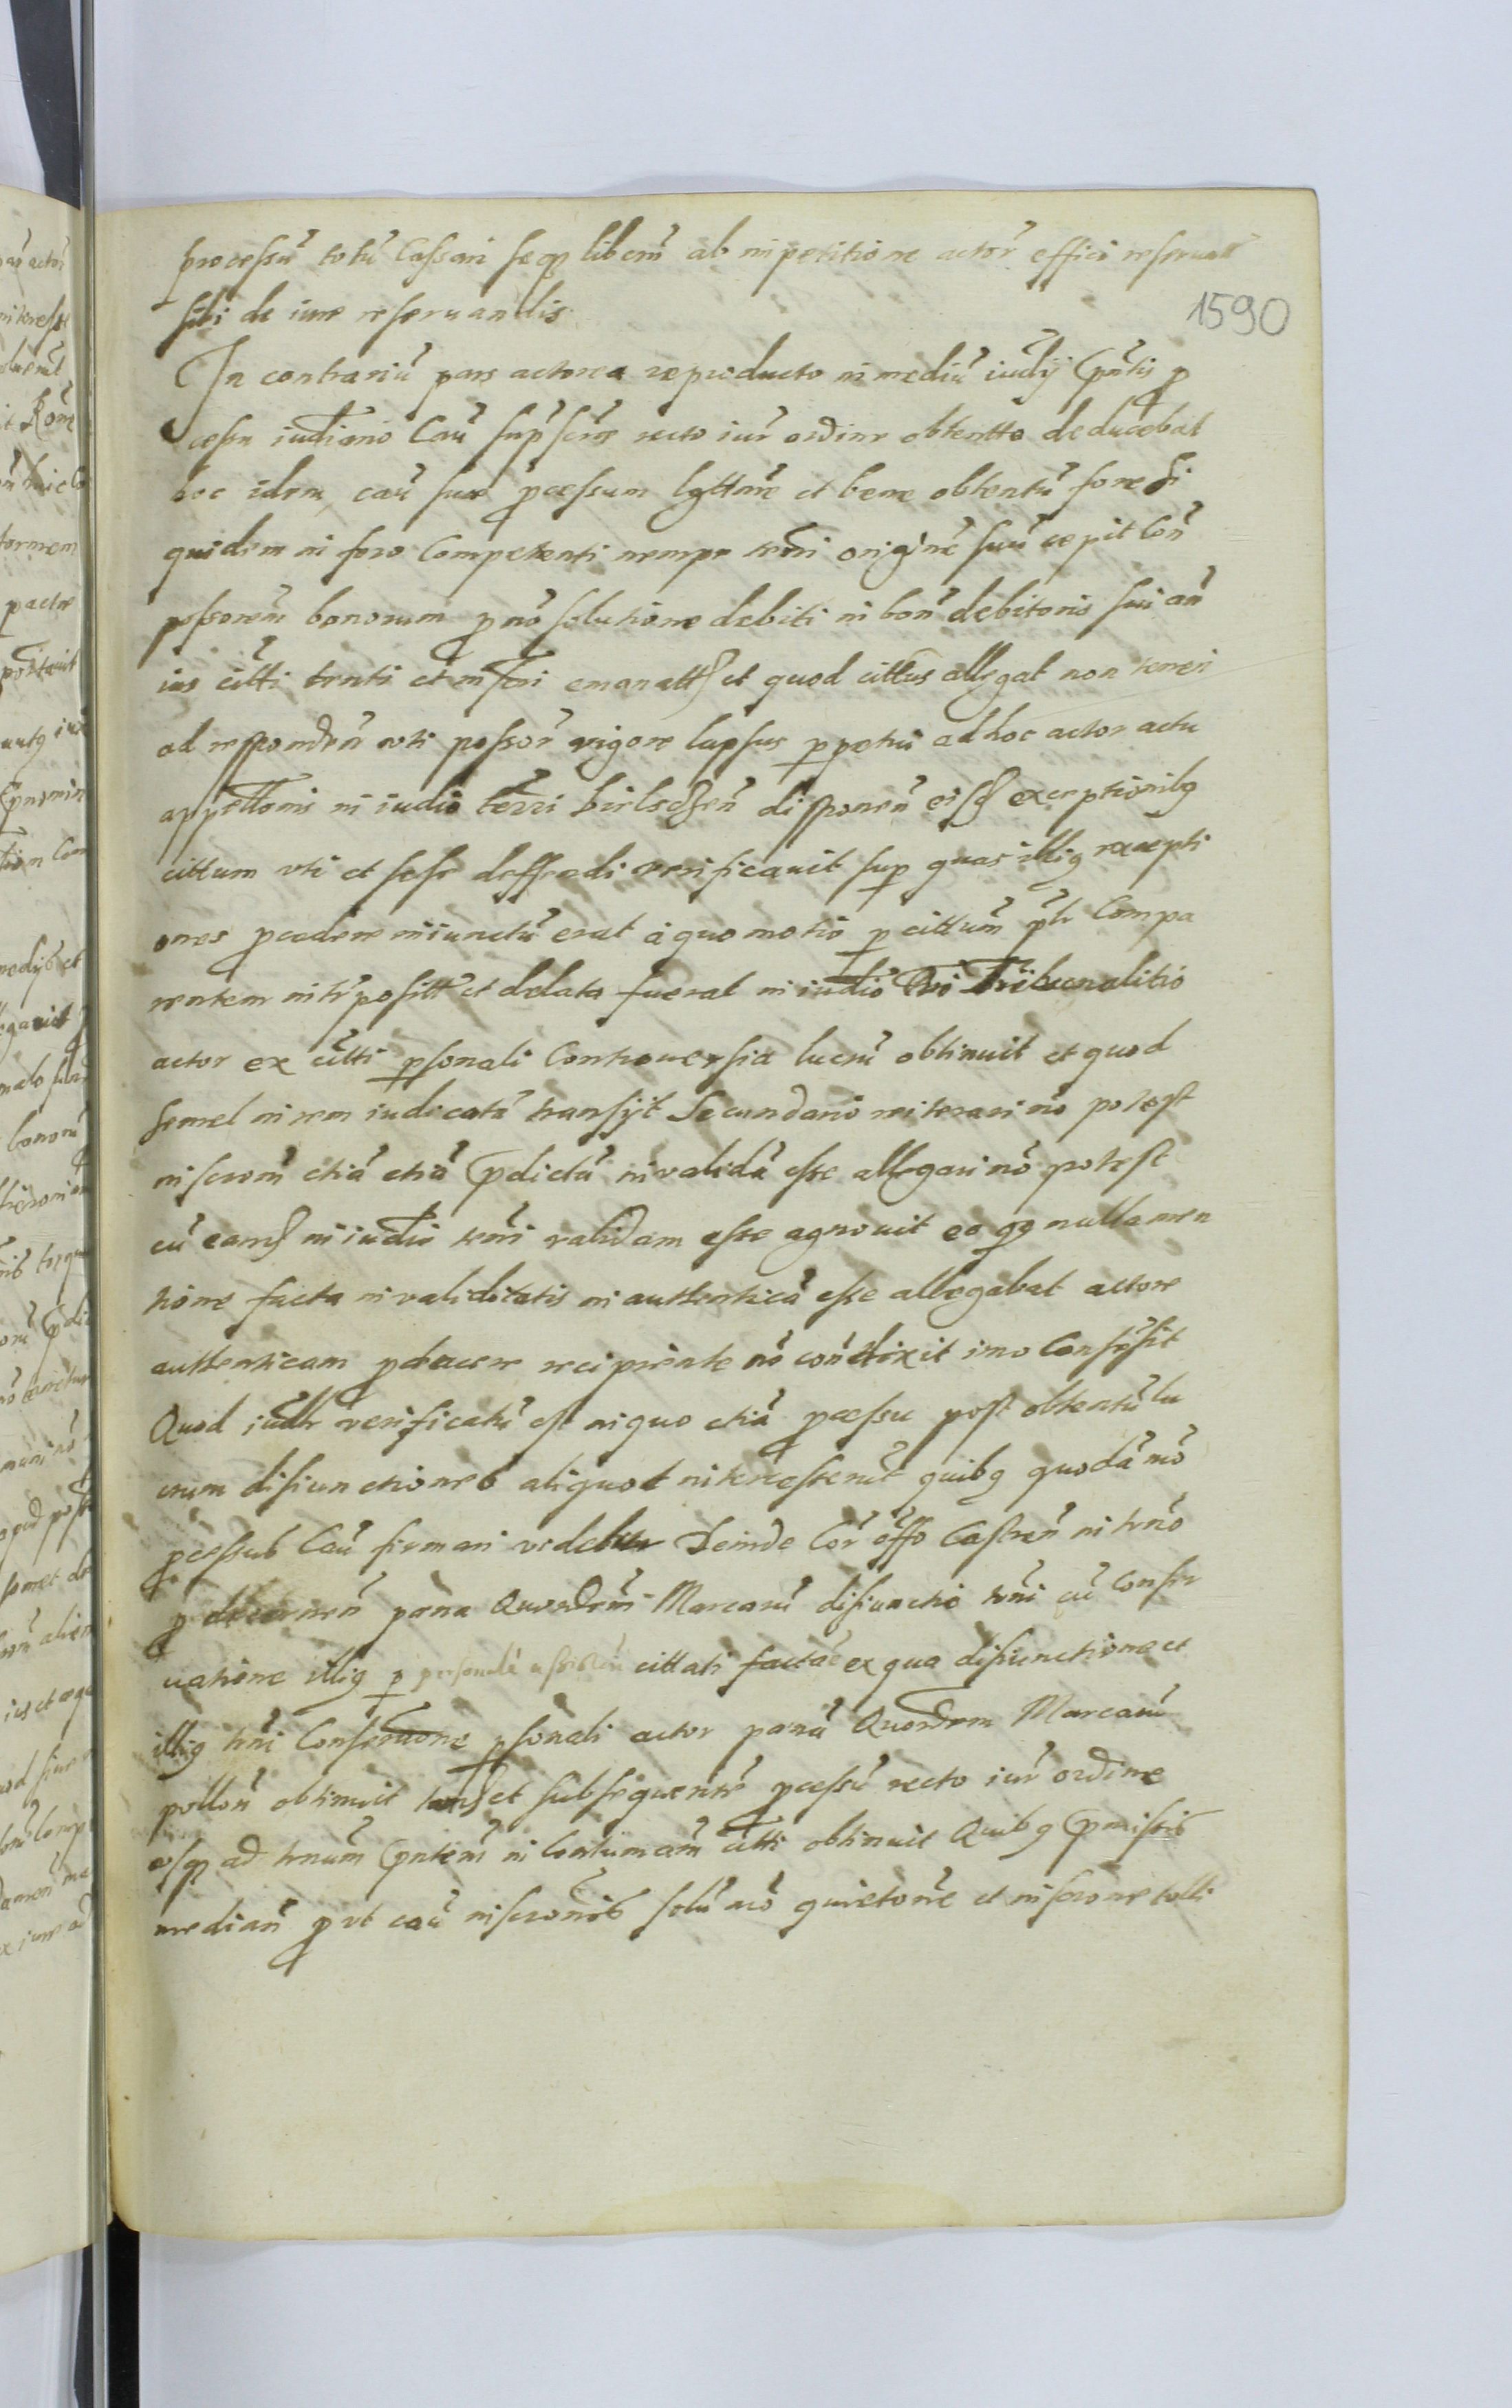 processũ totũ Cassari seqꝫ liberũ ab inpetitione actoř effici reseruatis
sibi de iure reseruandis
1590
In contrariũ pars actorea reproducto in mediũ iudỹ pñtis p
cessu iudiario Cau͂ sup͂scr͂e recto iur͂ ordine obtentto deducebat
hoc idem cau͂ suæ pcessum lgttme͂ et bene obtentũ fore Si
quidem in foro Competenti nempe trr͂i originẽ suũ cepit Con͂
possorem͂ bonorum p nõ solutione debiti in bon͂ debitoris sui an͂
ius citti͂ trnti et inscri emanatt et quod cittus allegat non teneri
ad respondeñ vti possor͂ vigore lapsus ppetui ad hoc actor actu
appellonis in iudio terri bielscen͂ disponen͂ eisd exceptionibꝫ
cittum vti et sese deffendi verificauit sup quas illiꝫ excepti
ones pcedere iniunctũ erat a quo motio p cittum͂ ptr Compa
rentem intr͂posittꝰ et delata fuerat in iudio Rni Tribunalitio
actor ex citti psonali Controuersia lucrũ obtinuit et quod
semel in rem iudicatã transijt Secundario reiterari nõ potest
inscrom͂ etiã etiã pdictã inualidã esse allegari nõ potest
cũ eamd in iudio trr͂i validam esse agnouit eo qꝫ nulla men
tione facta inualiditatis in authenticã esse allegabat actore
authenticam pducere recipiente nõ contdixit imo Consẽsit
Quod iudlr verificatũ est in quo etiã pcessu post obtentũ lu
crum disiunctiones aliquot intercesserũt quibꝫ quodãmõ
pcessus Cau͂ firmari videbatur Deinde Cor͂ offo Castren͂ in trn͂o
p decernen͂ pœna Quordrm͂ Marcarũ disiunctio trn͂i cũ Conser
uatione illiꝫ p personalẽ cittati factae ex qua disiunctione et
illiꝫ trn͂i Conseruaone psonali actor pœnã Quordrm Marcarũ
pollon͂ obtinuit tand et subsequente͂ pcessũ recto iur͂ ordine
vsqꝫ ad trnum͂ pntem͂ in Contumam͂ citti obtinuit Quibꝫ pmissis
median͂ p vt cau͂ inscronis solũmõ quietone͂ et inscrone tolli